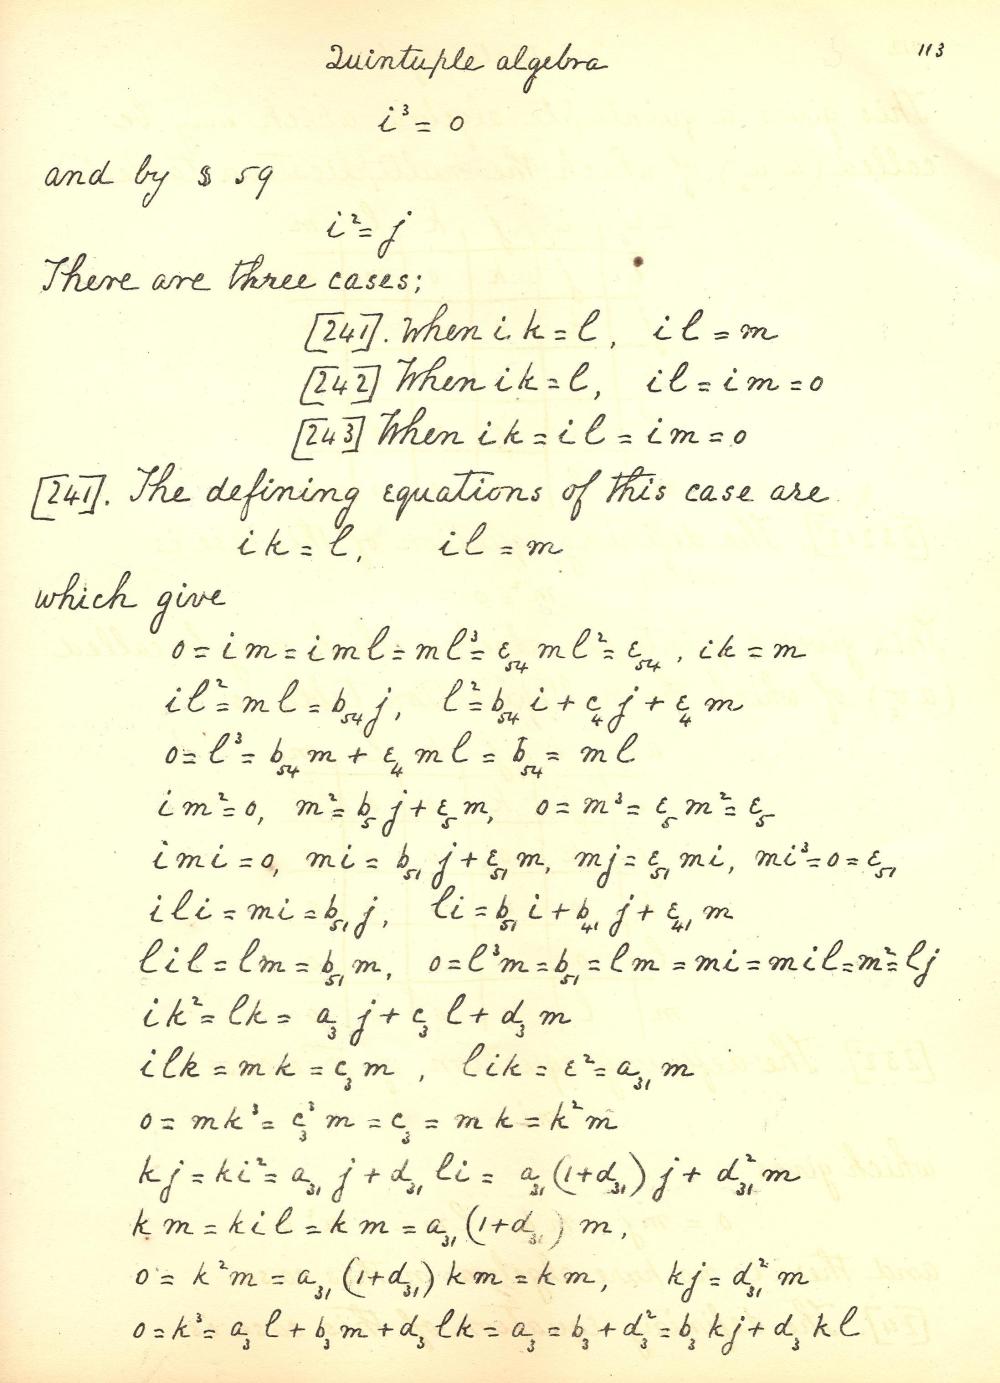 113
Quintuple algebra
i³ = 0
and by § 59
i² = j
There are three cases;
[241]. When ik = l, il = m
[242] When ik = l, il = im = 0
[243] When ik = il = im = 0
[241]. The defining equations of this case are
ik = l, il = m
which give
0 = im = iml = ml³ = ε₅₄ ml² = ε₅₄, ik = m
il² = ml = b₅₄ j, l² = b₅₄ i + c₄ j + ε₄ m
0 = l³ = b₅₄ m + ε₄ ml = b₅₄ = ml
im² = 0, m² = b₅ j + ε₅ m, 0 = m³ = ε₅ m² = ε₅
imi = 0, mi = b₅₁ j + ε₅₁ m, mj = ε₅₁ mi, mi³ = 0 = ε₅₁
ili = mi = b₅₁ j, li = b₅₁ i + b₄₁ j + ε₄₁ m
lil = lm = b₅₁ m, 0 = l³m = b₅₁ = lm = mi = mil = m² = lj
ik² = lk = a₃ j + c₃ l + d₃ m
ilk = mk = c₃ m, lik = ε² = a₃₁ m
0 = mk³ = c₃³ m = c₃ = mk = k²m
kj = ki² = a₃₁ j + d₃₁ li = a₃₁ (1 + d₃₁) j + d₃₁² m
km = kil = km = a₃₁ (1 + d₃₁) m,
0 = k²m = a₃₁ (1 + d₃₁) km = km, kj = d₃₁² m
0 = k³ = a₃ l + b₃ m + d₃ lk = a₃ = b₃ + d₃² = b₃ kj + d₃ kl